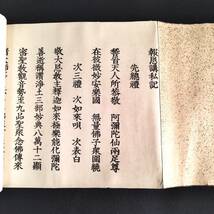 報恩講私記
先總禮
稽首天人所恭敬 阿彌陀仙兩足尊
在彼微妙安樂國 無量佛子衆圍繞
次三禮 次如來唄 次表白
敬大恩教主釋迦如來極樂能化彌陀
善逝稱讚淨土三部妙典八萬十二顯
密聖教觀音勢至九品聖衆念佛傳來